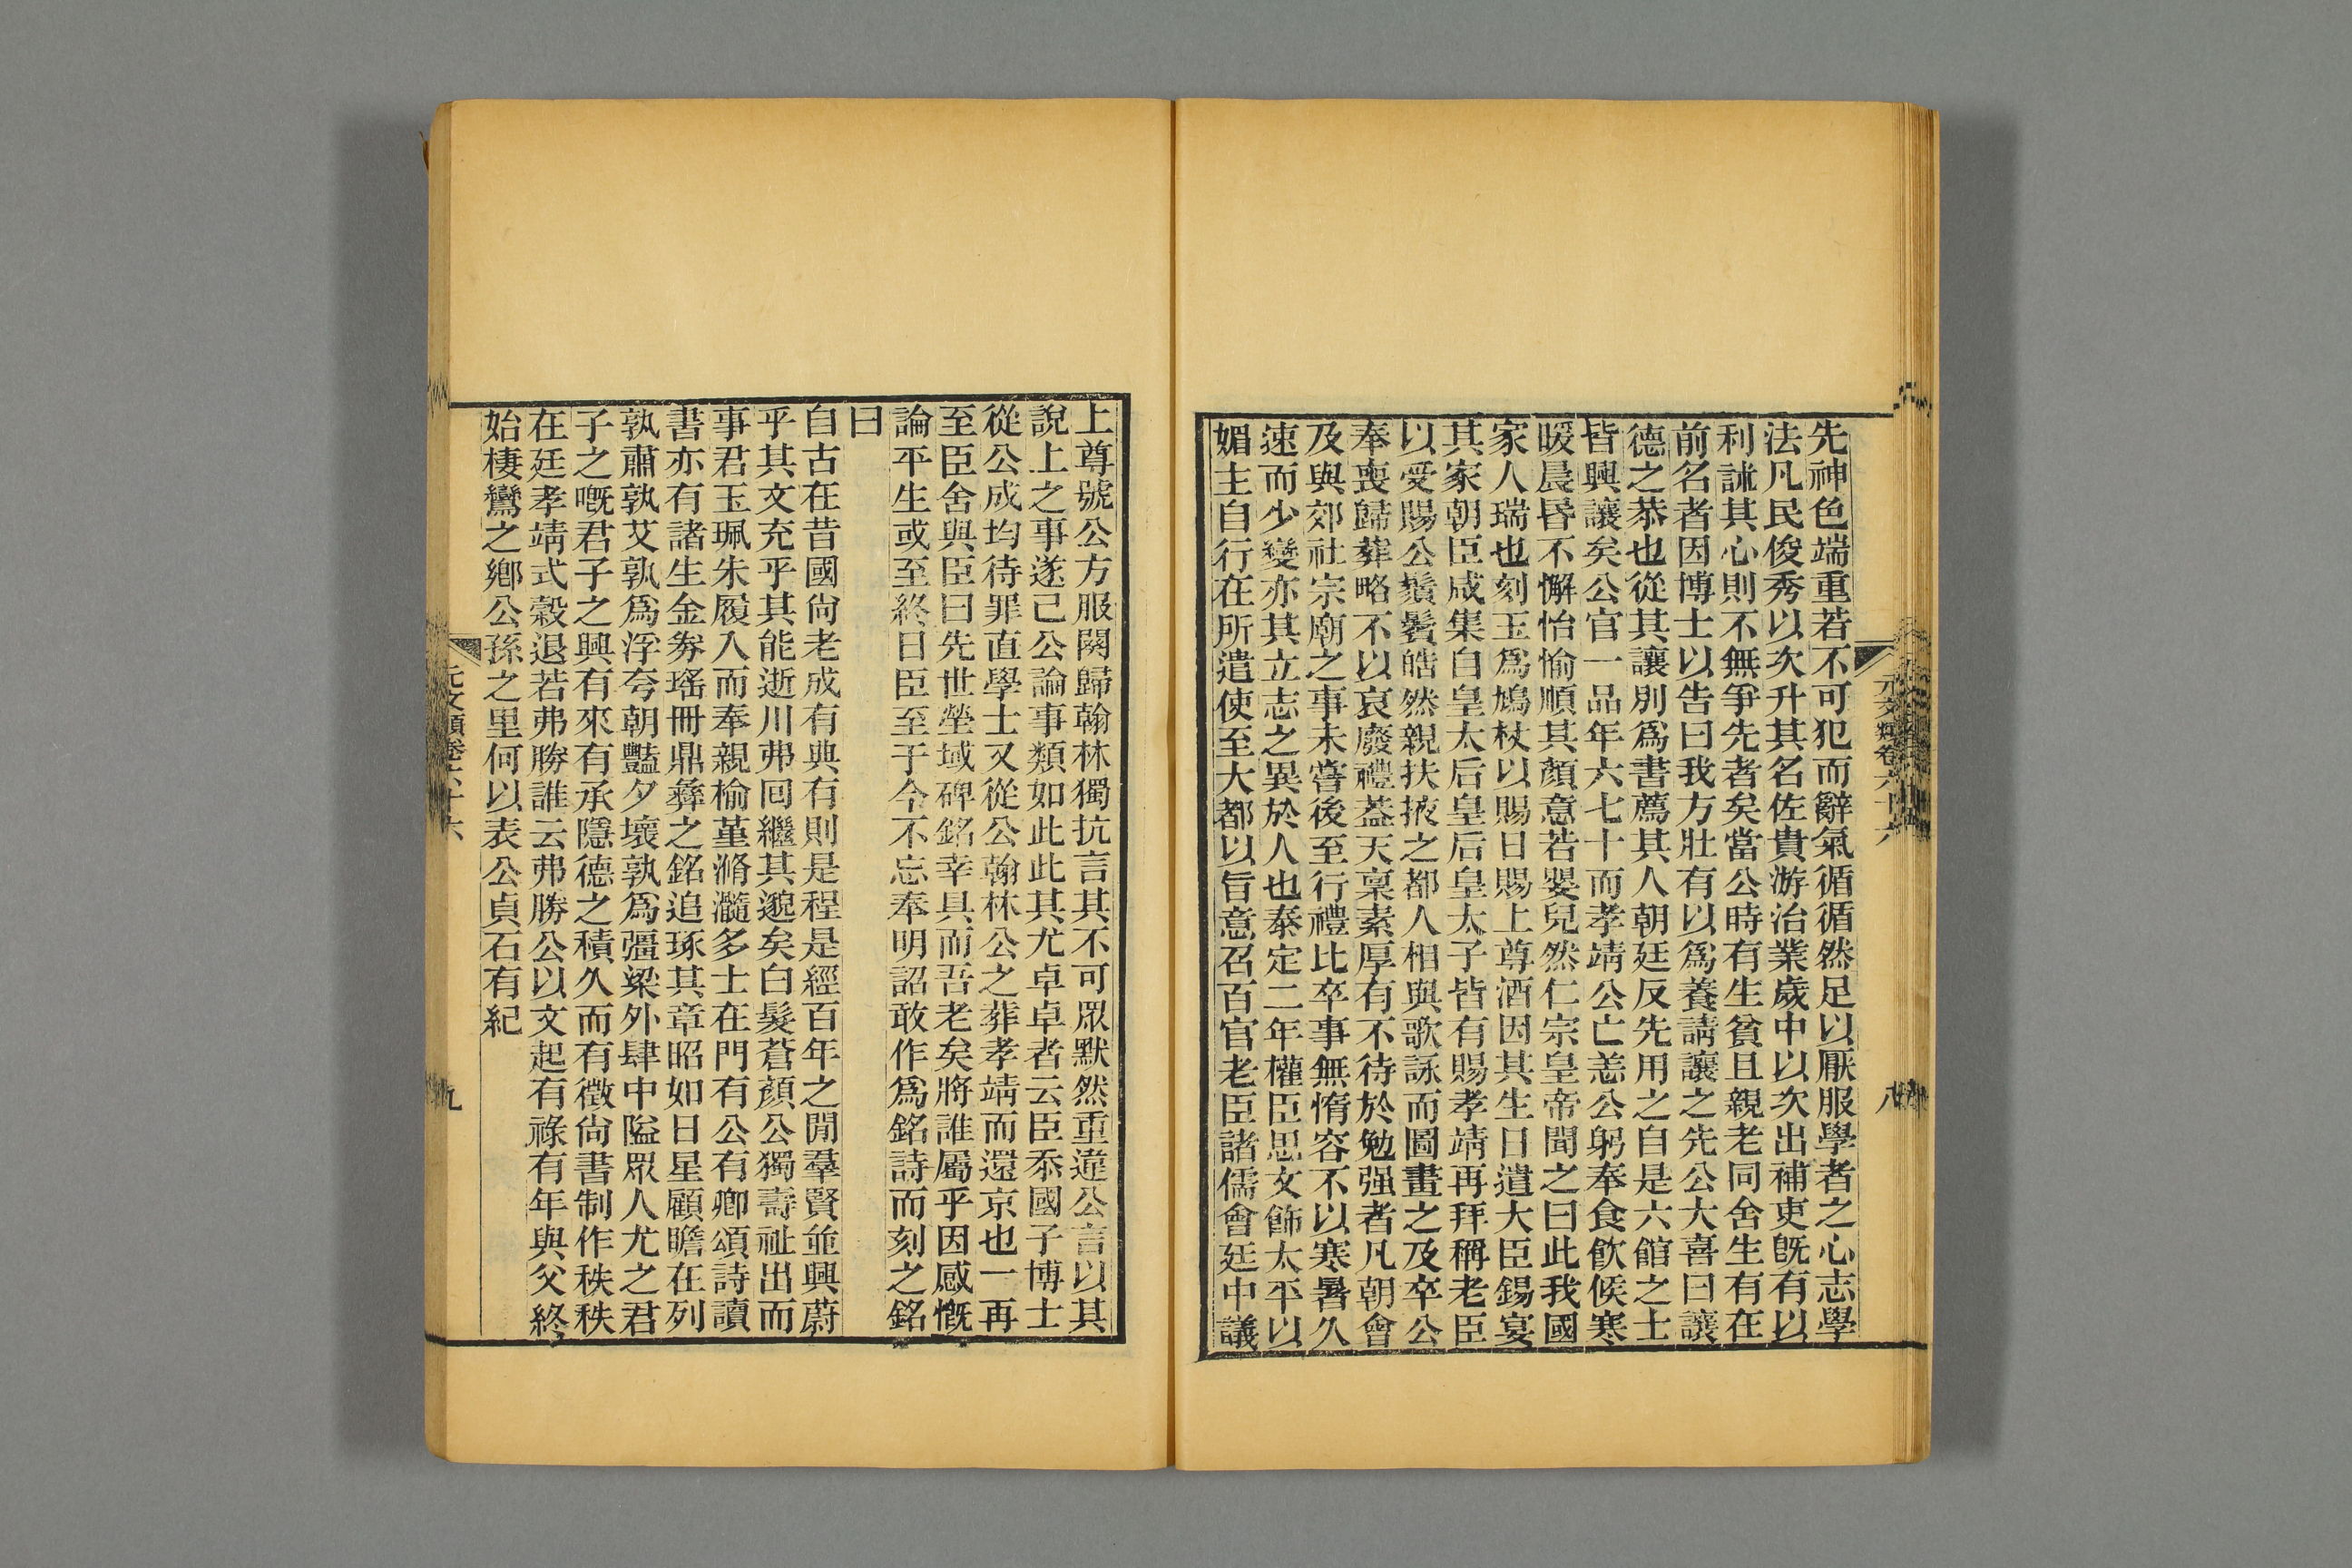 先神色端重若不可犯而辭氣循循然足以厭服學者之心志學
法凡民俊秀以次升其名佐貴游治業歲中以次出補吏旣有以
利訹其心則不無爭先者矣當公時有生貧且親老同舍生有在
前名者因博士以告曰我方壯有以爲養請讓之先公大喜曰讓
德之恭也從其讓別爲書薦其人朝廷反先用之自是六館之士
皆興讓矣公官一品年六七十而孝靖公亡恙公躬奉食飮候寒
暖晨昏不懈怡愉順其顏意若嬰兒然仁宗皇帝聞之曰此我國
家人瑞也刻玉爲鳩杖以賜日賜上尊酒因其生日遣大臣錫宴
其家朝臣咸集自皇太后皇后皇太子皆有賜孝靖再拜稱老臣
以受賜公鬚鬢皓然親扶掖之都人相與歌詠而圖畫之及卒公
奉喪歸葬略不以哀廢禮葢天稟素厚有不待於勉强者凡朝會
及與郊社宗廟之事未嘗後至行禮比卒事無惰容不以寒暑久
速而少變亦其立志之異於人也泰定二年權臣思文飾太平以
媚主自行在所遣使至大都以旨意召百官老臣諸儒會廷中議
元文類卷六十六
八
上尊號公方服闋歸翰林獨抗言其不可眾默然重違公言以其
說上之事遂已公論事類如此此其尤卓卓者云臣忝國子博士
從公成均待罪直學士又從公翰林公之葬孝靖而還京也一再
至臣舍與臣曰先世塋域碑銘幸具而吾老矣將誰屬乎因感慨
論平生或至終日臣至于今不忘奉明詔敢作爲銘詩而刻之銘
曰
自古在昔國尙老成有典有則是程是經百年之閒羣賢並興蔚
乎其文充乎其能逝川弗回繼其邈矣白髮蒼顏公獨壽祉出而
事君玉珮朱履入而奉親榆堇滫瀡多士在門有公有卿頌詩讀
書亦有諸生金劵瑤冊鼎彝之銘追琢其章昭如日星顧瞻在列
孰肅孰艾孰爲浮夸朝豔夕壞孰爲彊梁外肆中隘眾人尤之君
子之嘅君子之興有來有承隱德之積久而有徵尙書制作秩秩
在廷孝靖式穀退若弗勝誰云弗勝公以文起有祿有年與父終
始棲鸞之鄉公孫之里何以表公貞石有紀
元文類卷六十六
九